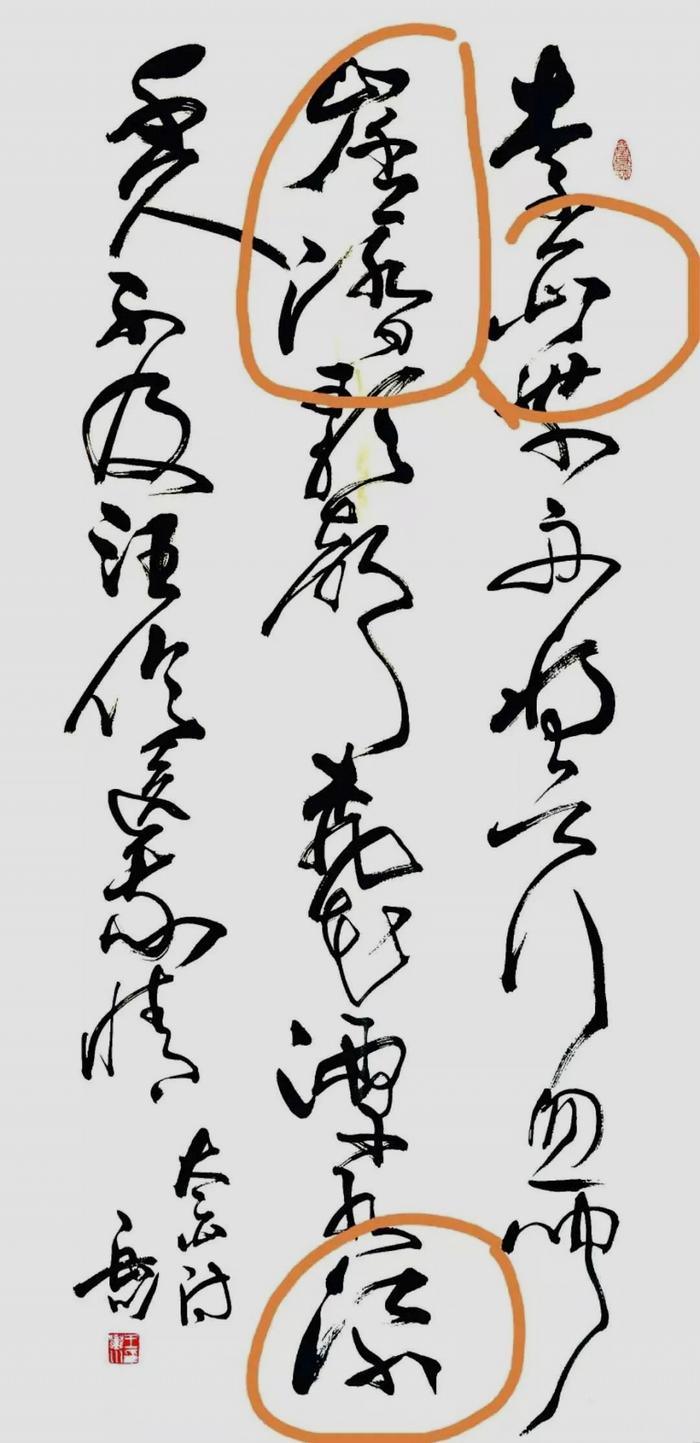 李白乘舟将欲行忽闻
岸上踏歌声桃花潭水深
千尺不及汪伦送我情
太白诗